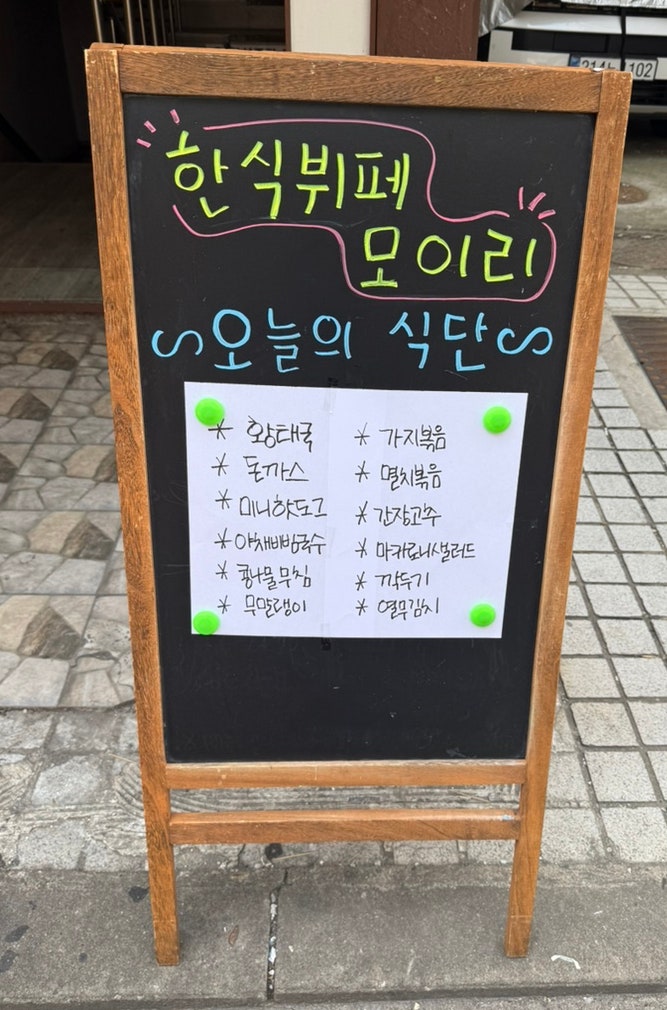 한식뷔페
모이리
오늘의 식단
* 황태국
* 돈까스
* 미니핫도그
* 야채비빔국수
* 콩나물무침
* 무말랭이
* 가지볶음
* 멸치볶음
* 간장고추
* 마카로니샐러드
* 깍두기
* 열무김치
102